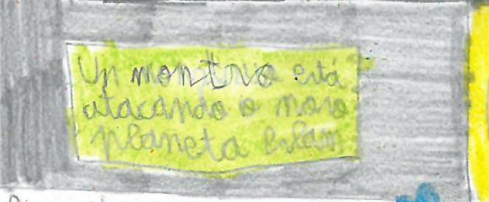 Um monstrio está
atacando o novo
planeta